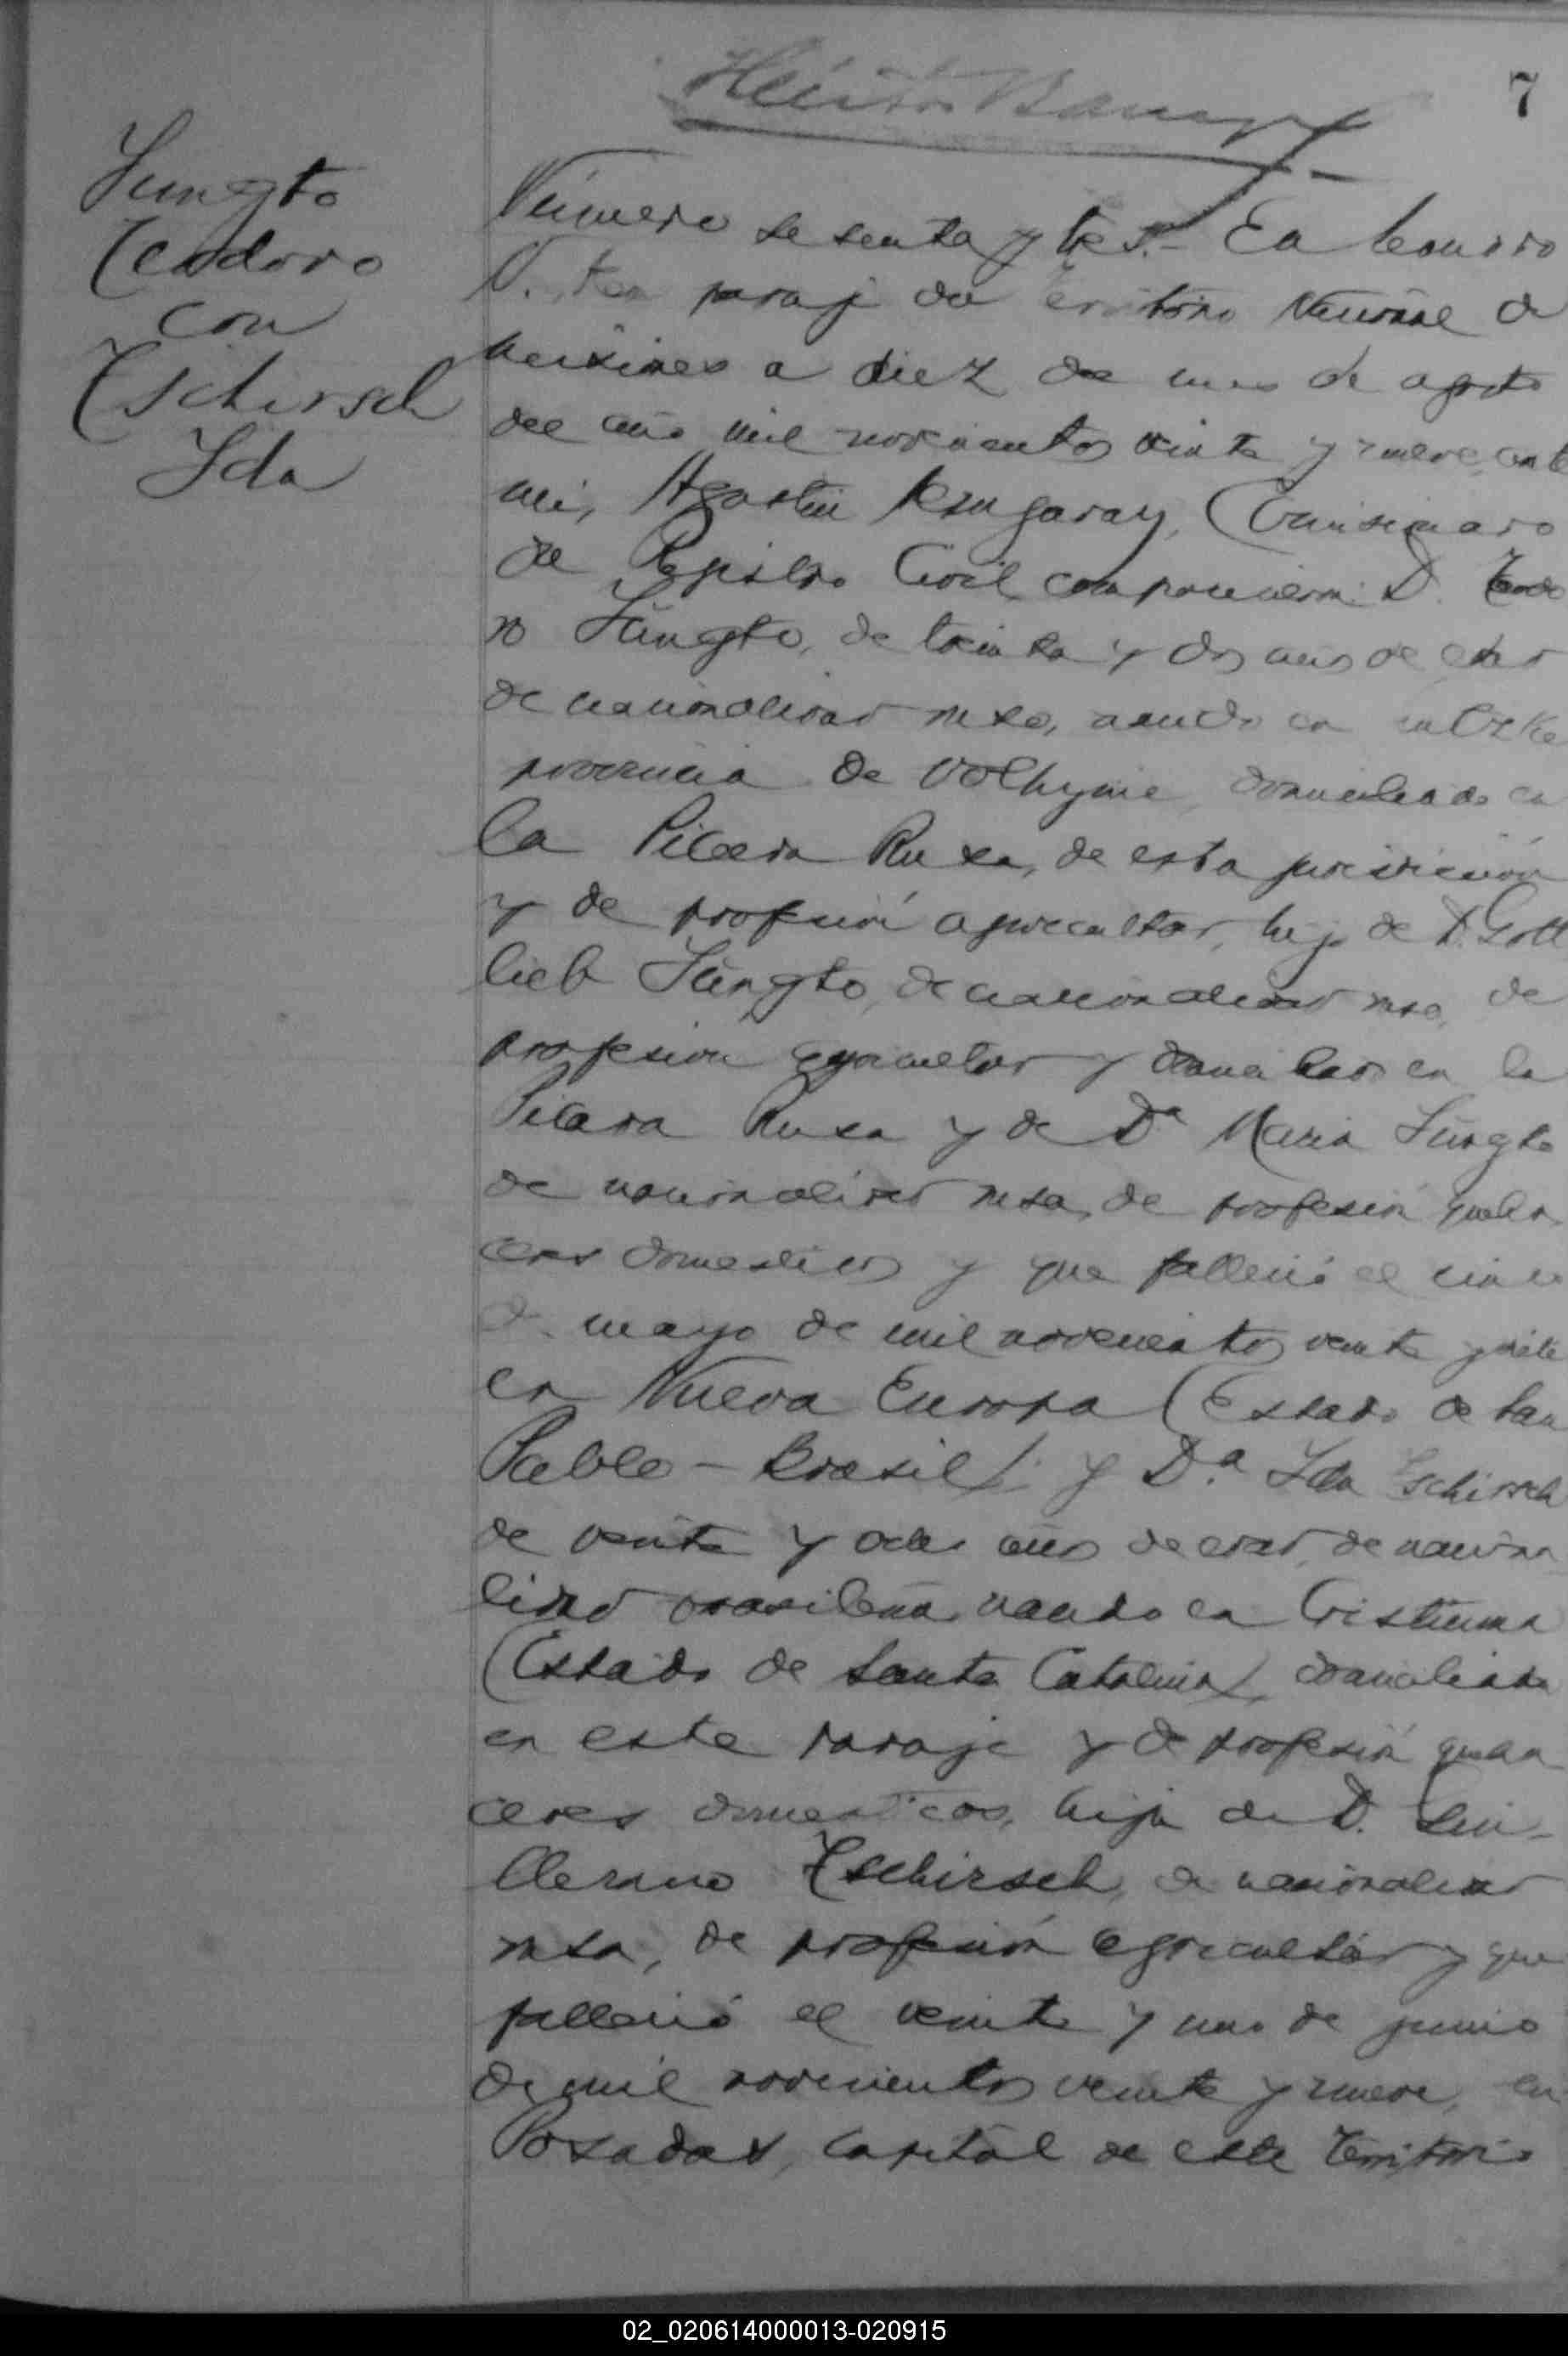 7
Jüngto
Teodoro
con
Tschirsch
Ida
Número sesenta y tres.- En
paraje del Territorio Nacional de
Misiones a diez del mes de agosto
del año mil novecientos veinte y nueve, ante
mi, Agustin Comisionado
de Registro Civil comparecieron: D. Teodo
ro Jüngto, de treinta y dos años de edad
de nacionalidad rusa, nacido en
provincia de Volhynie, domiciliado en
la Picada Rusa, de esta jurisdicción
y de profesión agricultor, hijo de D. Gott
lieb Jüngto, de nacionalidad rusa, de
profesión agricultor y domiciliado en la
Picada Rusa y de Dª Maria Jüngto
de nacionalidad rusa, de profesión queha
ceres domesticos y que falleció el cinco
de mayo de mil novecientos veinte y siete
en Nueva Europa (Estado de San
Pablo - Brasil); y Dª Ida Tschirsch
de veinte y ocho años de edad, de naciona
lidad brasileña, nacida en Cristiuma
(Estado de Santa Catalina), domiciliada
en este paraje y de profesión queha
ceres domesticos, hija de D. Gui-
llermo Tschirsch, de nacionalidad
rusa, de profesión agricultor y que
falleció el veinte y uno de junio
de mil novecientos veinte y nueve, en
Posadas, capital de este Territorio
02_020614000013-020915